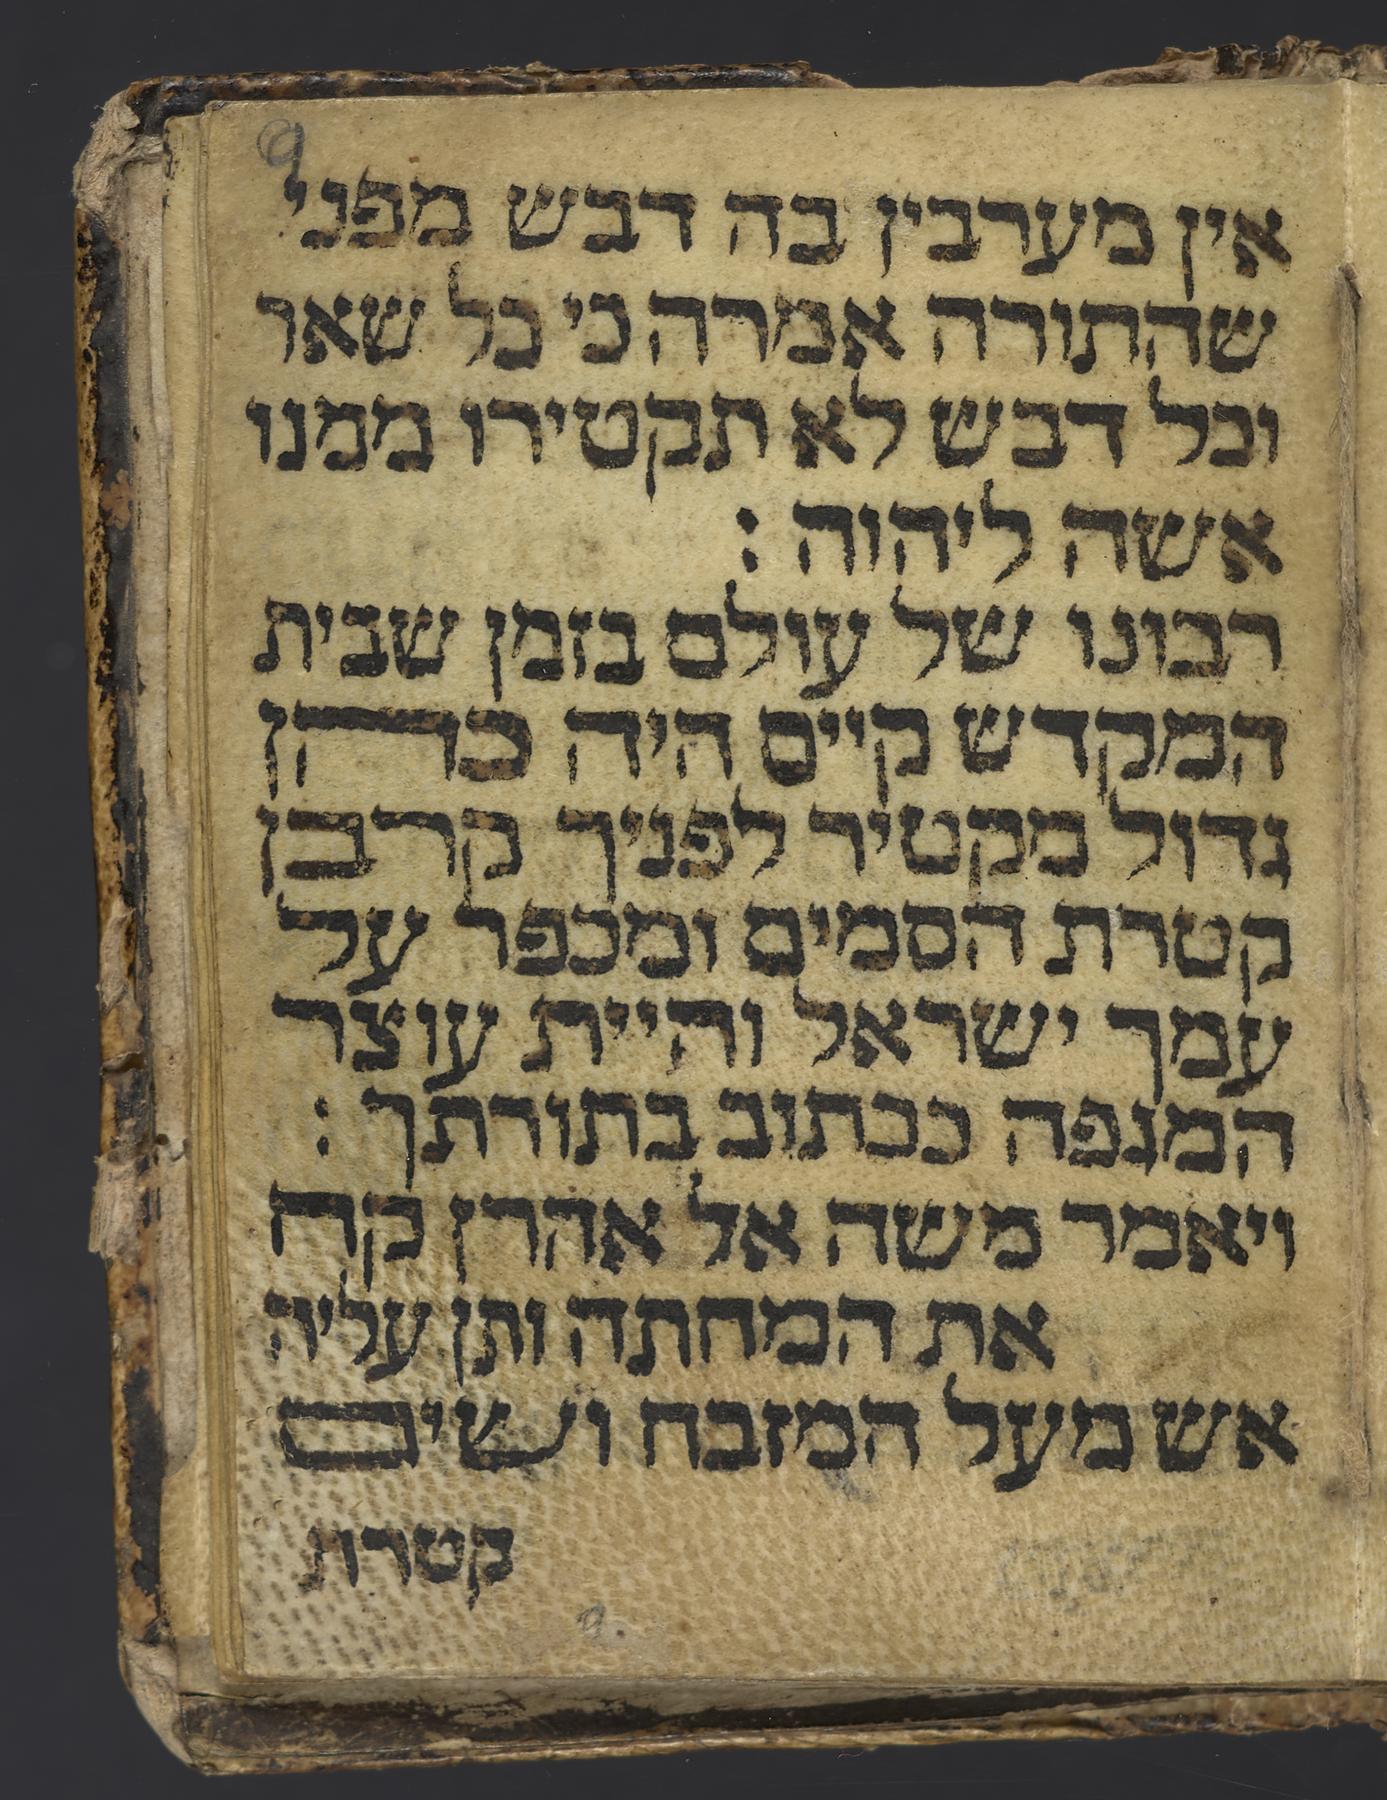 9
אין מערבין בה דבש מפני
שהתורה אמרה כי כל שאר
וכל דבש לא תקטירו ממנו
אשה ליהוה :
רבונו של עולם בזמן שבית
המקדש קיים היה כהן
גדול מקטיר לפניך קרבן
קטרת הסמים ומכפר על
עמך ישראל והיית עוצר
המגפה ככתוב בתורתך :
ויאמר משה אל אהרן קח
את המחתה ותן עליה
אש מעל המזבח ושים
קטרת
9.